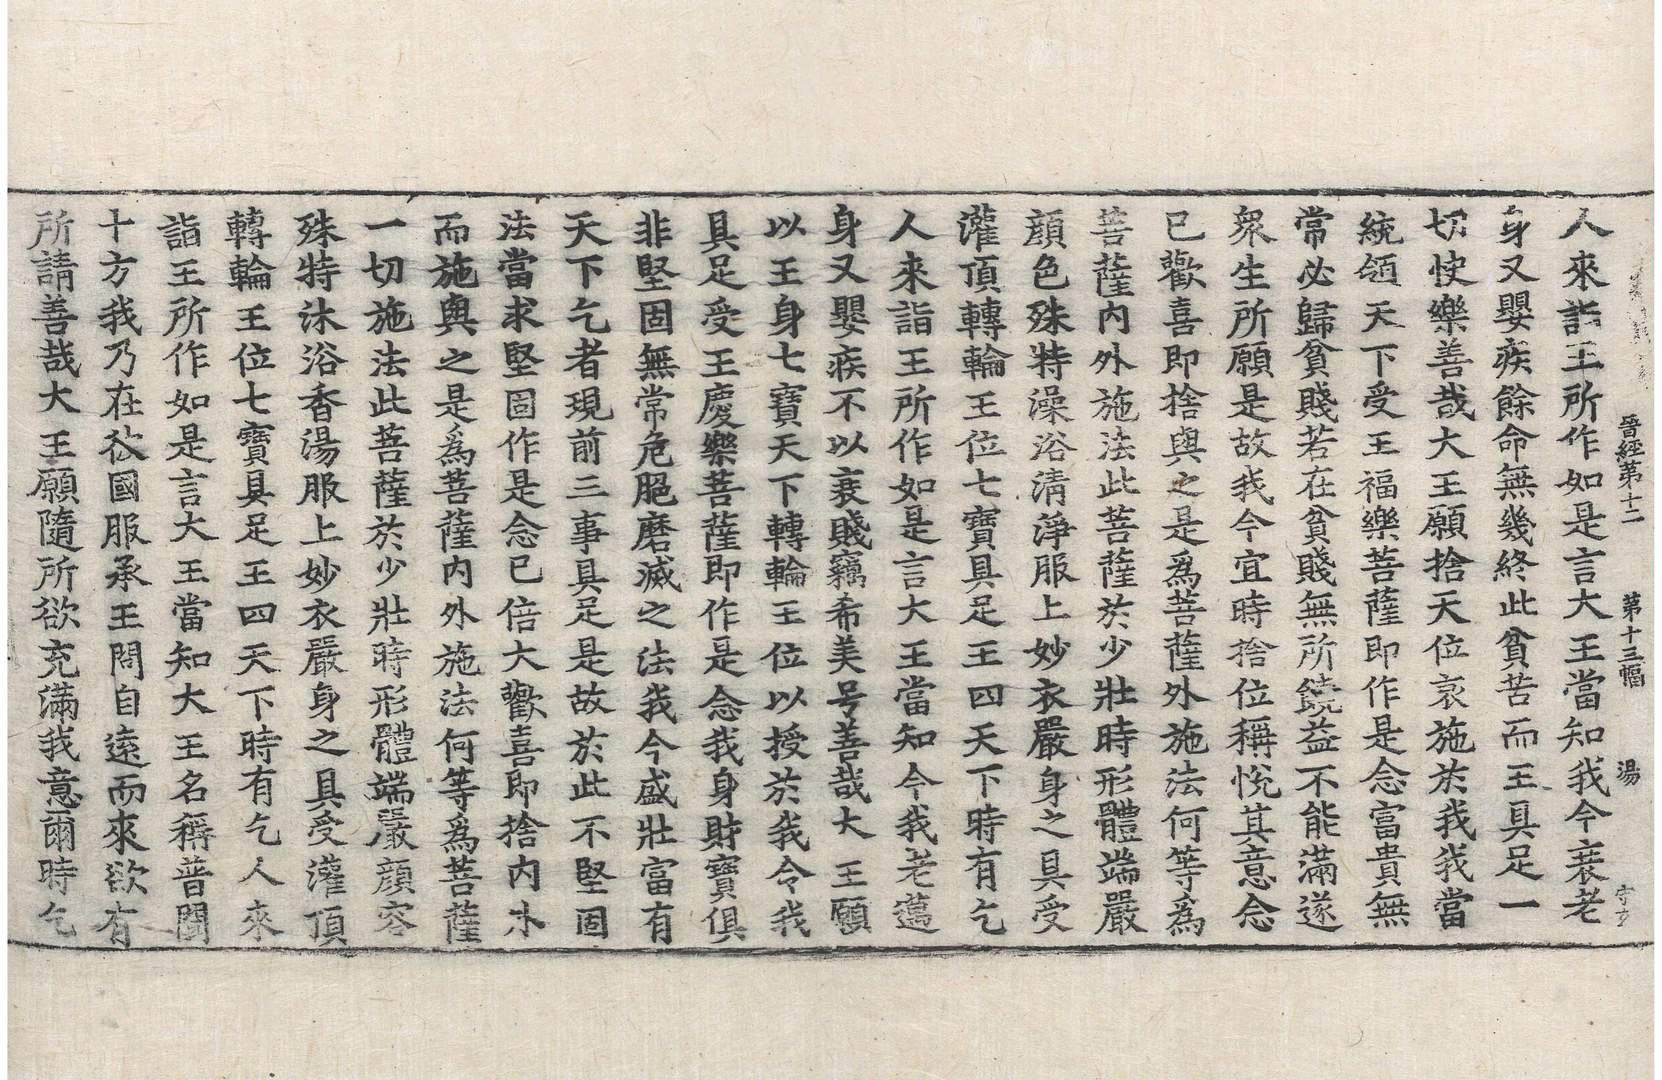 晉經第十二 第十三幅 湯 守
人來詣王所作如是言大王當知我今衰老
身又嬰疾餘命無幾終此貧苦而王具足一
切快樂善哉大王願捨天位哀施於我我當
統領天下受王福樂菩薩即作是念富貴無
常必歸貧賤若在貧賤無所饒益不能滿遂
衆生所願是故我今宜時捨位稱悅其意念
已歡喜即捨與之是爲菩薩外施法何等爲
菩薩內外施法此菩薩於少壯時形體端嚴
顔色殊特澡浴清淨服上妙衣嚴身之具受
灌頂轉輪王位七寶具足王四天下時有乞
人來詣王所作如是言大王當知今我老邁
身又嬰疾不以衰賤竊希美号善哉大王願
以王身七寶天下轉輪王位以授於我令我
具足受王慶樂菩薩即作是念我身財寶俱
非堅固無常危脆磨滅之法我今盛壯富有
天下乞者現前三事具足是故於此不堅固
法當求堅固作是念已倍大歡喜即捨內外
而施與之是爲菩薩內外施法何等爲菩薩
一切施法此菩薩於少壯時形體端嚴顔容
殊特沐浴香湯服上妙衣嚴身之具受灌頂
轉輪王位七寶具足王四天下時有乞人來
詣王所作如是言大王當知大王名稱普聞
十方我乃在彼國服承王問自遠而來欲有
所請善哉大王願隨所欲充滿我意爾時乞